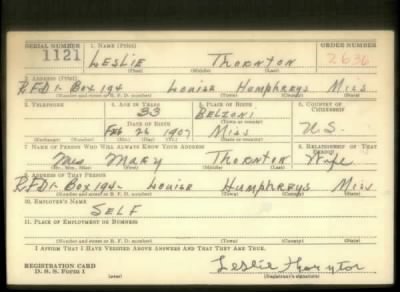 SERIAL NUMBER 1. NAME (Print) ORDER NUMBER
1121 LESLIE THORNTON 2636
(First) (Middle) (Last)
2. ADDRESS (Print)
R.F.D 1- BOX 194 LOUISE HUMPHREYS MISS
(Number and street or R. F. D. number) (Town) (County) (State)
3. TELEPHONE 4. AGE IN YEARS 5. PLACE OF BIRTH 6. COUNTRY OF CITIZENSHIP
33 BELZONI
DATE OF BIRTH (Town or county)
FEB 26 1907 MISS U.S.
(Exchange) (Number) (Mo.) (Day) (Yr.) (State or country)
7. NAME OF PERSON WHO WILL ALWAYS KNOW YOUR ADDRESS 8. RELATIONSHIP OF THAT PERSON
MRS MARY THORNTON WIFE
(Mr., Mrs., Miss) (First) (Middle) (Last)
9. ADDRESS OF THAT PERSON
R.F.D 1- BOX 194- LOUISE HUMPHREYS MISS
(Number and street or R. F. D. number) (Town) (County) (State)
10. EMPLOYER'S NAME
SELF
11. PLACE OF EMPLOYMENT OR BUSINESS
(Number and street or R. F. D. number) (Town) (County) (State)
I AFFIRM THAT I HAVE VERIFIED ABOVE ANSWERS AND THAT THEY ARE TRUE.
REGISTRATION CARD Leslie Thornton
D. S. S. Form 1 (over) (Registrant's signature)